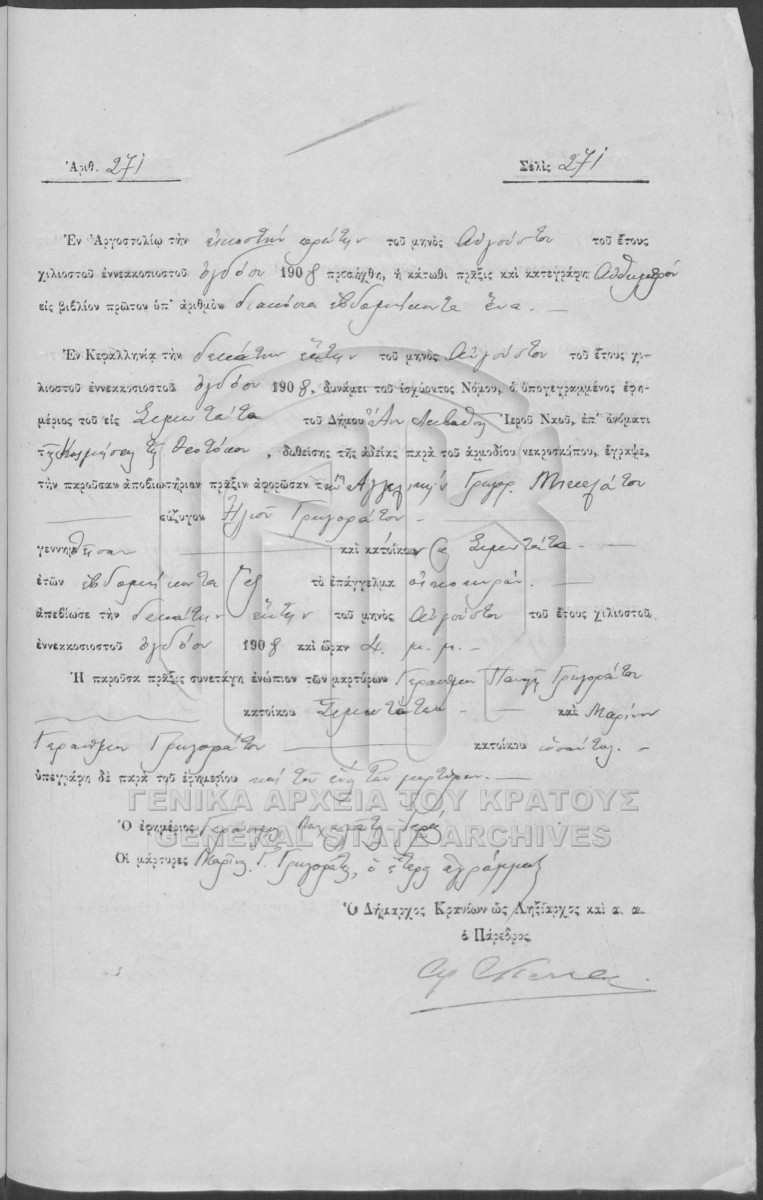 Ἀριθ. 271
Σελὶς 271
Ἐν Ἀργοστολίῳ τὴν εἰκοστὴν πρώτην τοῦ μηνὸς Αὐγούστου τοῦ ἔτους
χιλιοστοῦ ἐννεακοσιοστοῦ ὀγδόου 1908 προσήχθη, ἡ κάτωθι πρᾶξις καὶ κατεγράφη αὐθημερὸν
εἰς βιβλίον πρῶτον ὑπ' ἀριθμὸν διακόσια ἑβδομήκοντα ἕνα. -
Ἐν Κεφαλληνίᾳ τὴν δεκάτην ἕκτην τοῦ μηνὸς Αὐγούστου τοῦ ἔτους χι-
λιοστοῦ ἐννεακοσιοστοῦ ὀγδόου 1908, δυνάμει τοῦ ἰσχύοντος Νόμου, ὁ ὑπογεγραμμένος ἐφη-
μέριος τοῦ εἰς Σιμωτάτα τοῦ Δήμου Λιβαθοῦς Ἱεροῦ Ναοῦ, ἐπ' ὀνόματι
τῆς Κοιμήσεως τῆς Θεοτόκου, δοθείσης τῆς ἀδείας παρὰ τοῦ ἁρμοδίου νεκροσκόπου, ἔγραψε,
τὴν παροῦσαν ἀποβιωτήριον πρᾶξιν ἀφορῶσαν τὴν Ἀγγελικὴν Γρηγορ.
σύζυγον Ἠλιοῦ Γρηγοράτου -
γεννηθεῖσαν καὶ κατοικοῦσαν Σιμωτάτα. -
ἐτῶν ἑβδομήκοντα τὸ ἐπάγγελμα οἰκοκυράν. -
ἀπεβίωσε τὴν δεκάτην ἕκτην τοῦ μηνὸς Αὐγούστου τοῦ ἔτους χιλιοστοῦ
ἐννεακοσιοστοῦ ὀγδόου 1908 καὶ ὥραν 4. μ. μ. -
Ἡ παροῦσα πρᾶξις συνετάγη ἐνώπιον τῶν μαρτύρων Γερασίμου Παναγῆ Γρηγοράτου
κατοίκου Σιμωτάτων - καὶ Μαρίνου
Γερασίμου Γρηγοράτου κατοίκου ὡσαύτως. -
ὑπεγράφη δὲ παρὰ τοῦ ἐφημερίου καὶ τοῦ ἑνὸς τῶν μαρτύρων. -
ΓΕΝΙΚΑ ΑΡΧΕΙΑ ΤΟΥ ΚΡΑΤΟΥΣ
Ὁ ἐφημέριος Γεράσιμος ἱερεύς
GENERAL STATE ARCHIVES
Οἱ μάρτυρες Μαρῖνος Γ. Γρηγοράτος, ὁ ἕτερος ἀγράμματος
Ὁ Δήμαρχος Κρανίων ὡς Ληξίαρχος καὶ α. α.
ὁ Πάρεδρος